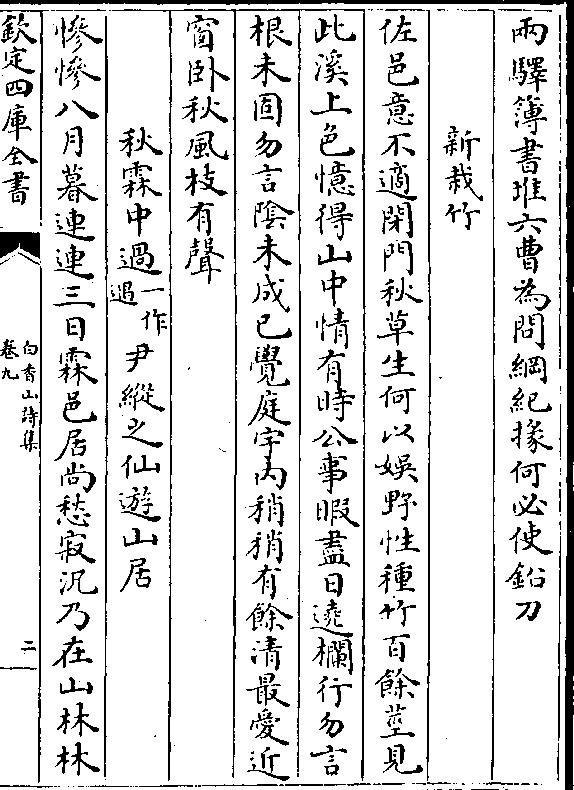 兩驛簿書堆六曹為問綱紀掾何必使鉛刀
新栽竹
佐邑意不適閉門秋草生何以娛野性種竹百餘莖見
此溪上色憶得山中情有時公事暇盡日遶欄行勿言
根未固勿言陰未成已覺庭宇內稍稍有餘清最愛近
窗卧秋風枝有聲
秋霖中過一作遇尹縱之仙遊山居
慘慘八月暮連連三日霖邑居尚愁寂況乃在山林林
欽定四庫全書
白香山詩集
卷九
二